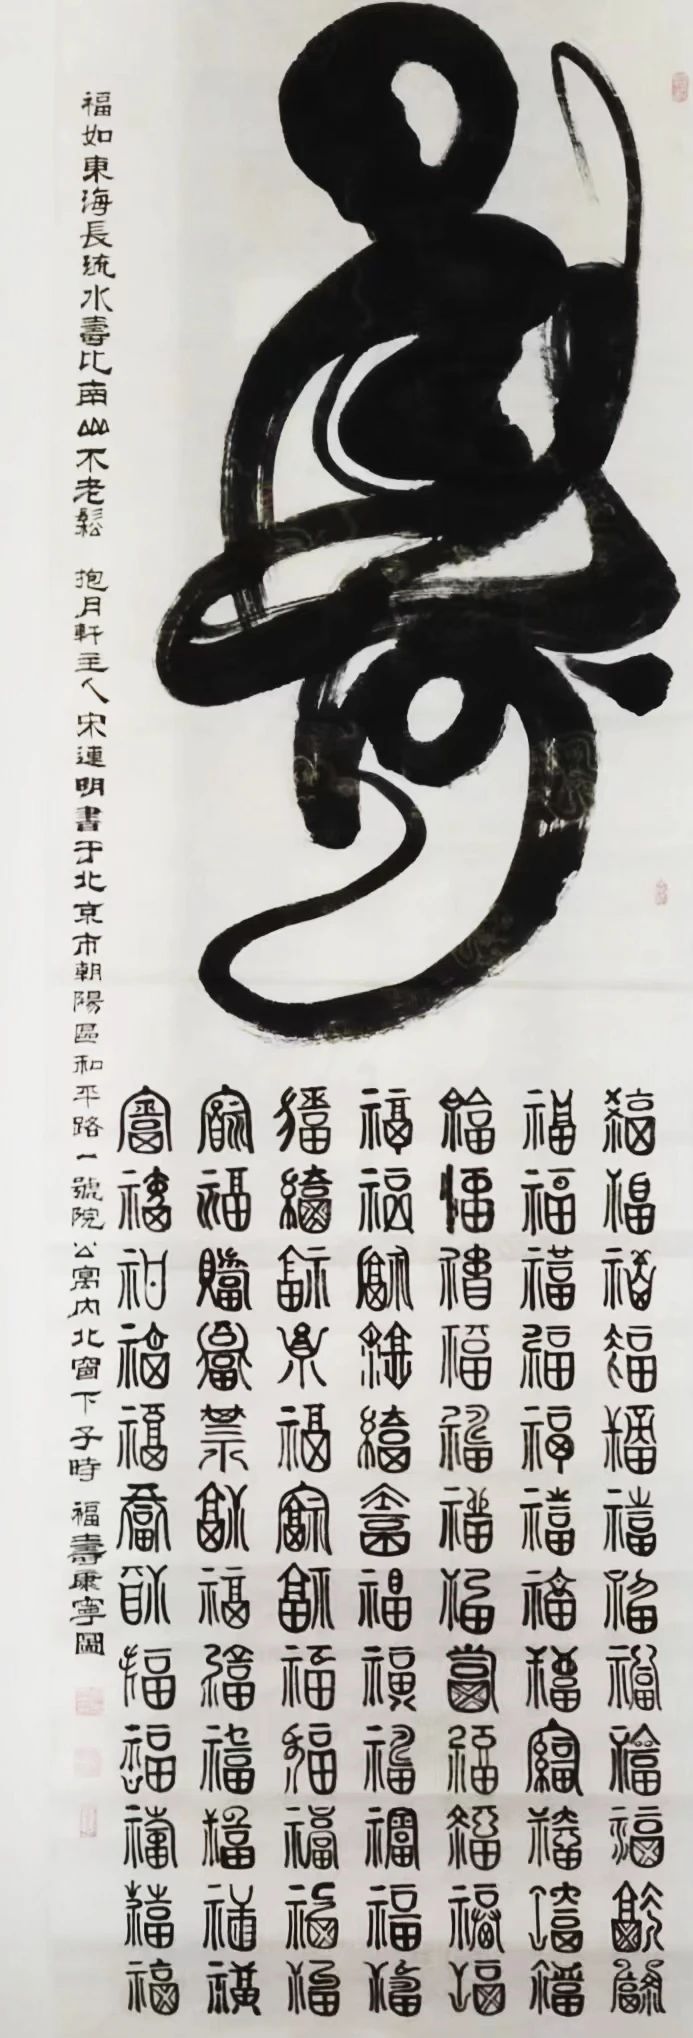 壽
福福福福福福福福福福福福
福福福福福福福福福福福福
福福福福福福福福福福福福
福福福福福福福福福福福福
福福福福福福福福福福福福
福福福福福福福福福福福福
福福福福福福福福福福福福
福如東海長流水壽比南山不老鬆 抱月軒主人宋連明書于北京市朝陽區和平路一號院公寓内北窗下子時 福壽康寧圖